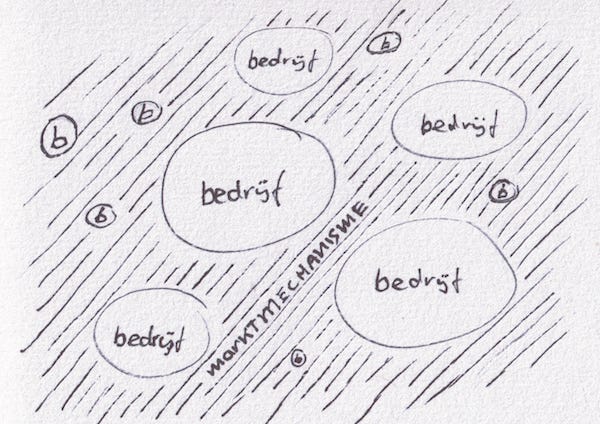 bedrijf
b
b
b
bedrijf
bedrijf
b
b
marktMECHANISME
bedrijf
bedrijf
b